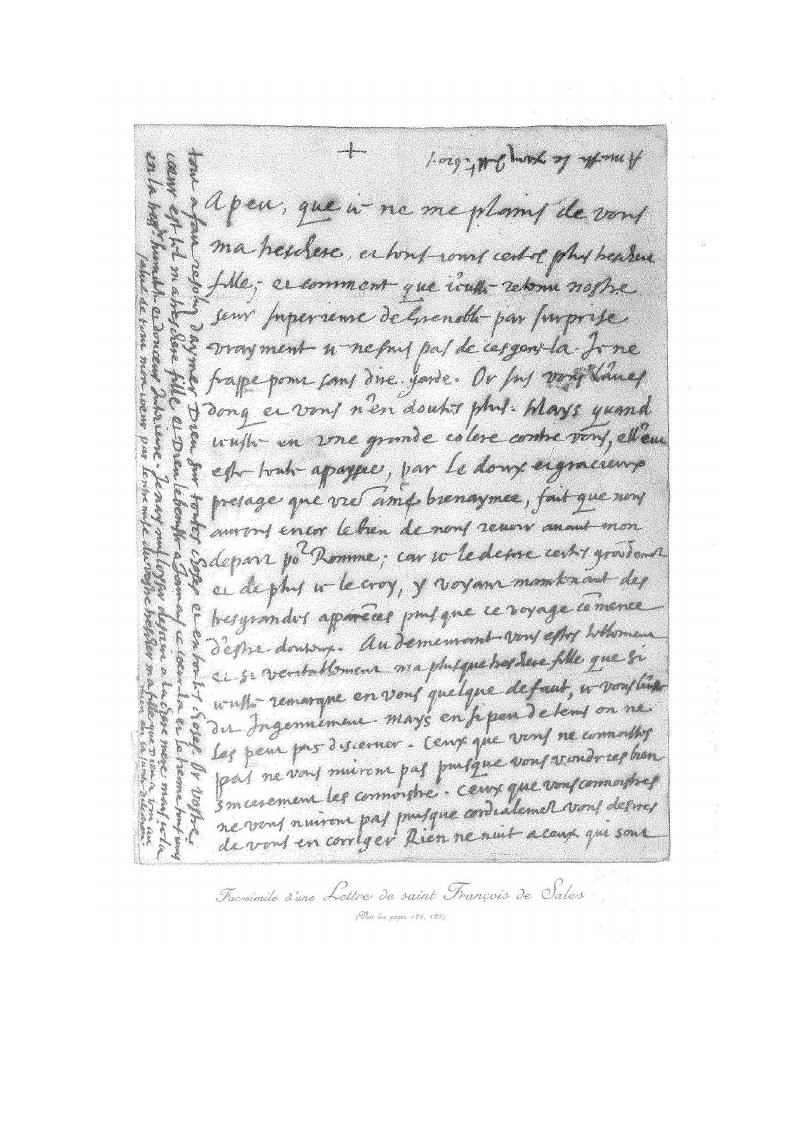 +
A peu, que ie ne me plains de vous
ma treschere, et tous iours certes plus treschere
fille; et comment que i'eusse retenu nostre
seur superieure de Grenoble par surprise
vrayment ie ne suis pas de ces gens la. Je ne
frappe point sans dire garde. Or sus vous l'aues
donq et vous n'en doutes plus. Mays quand
i'eusse eu une grande colere contre vous, ell'eut
esté toute appaysee, par le doux et gracieux
presage que vre ame bienaymee, fait que nous
aurons encor le bien de nous reuoir auant mon
depart por Romme; car ie le desire certes grandemt
et de plus ie le croy, y voyant maintenant des
tresgrandes apparẽces puisque ce voyage cõmence
d'estre douteux. Au demeurant vous estes tellement
et si veritablement ma plusquetreschere fille que si
i'eusse remarqué en vous quelque defaut, ie vous l'eusse
dit Ingenuement. mays en si peu de tems on ne
les peut pas discerner. Ceux que vous ne connoisses
pas ne vous nuiront pas puisque vous voudries bien
sincerement les connoistre. Ceux que vous connoistres
ne vous nuiront pas puisque cordialemẽt vous desires
de vous en corriger Rien ne nuit a ceux qui sont
tout a fait resolus d'aymer Dieu sur toutes choses et en toutes choses. Or vostre
cœur est tel ma treschere fille et Dieu le benisse a Jamais ce cœur la et le tienne tous iours
en la tresste humilité et douceur de
salue de tout mon cœur par l'entremise du vostre treschere ma fille que Dieu a
Fac-simile d'une Lettre de saint François de Sales
(Voir les pages 184, 185)